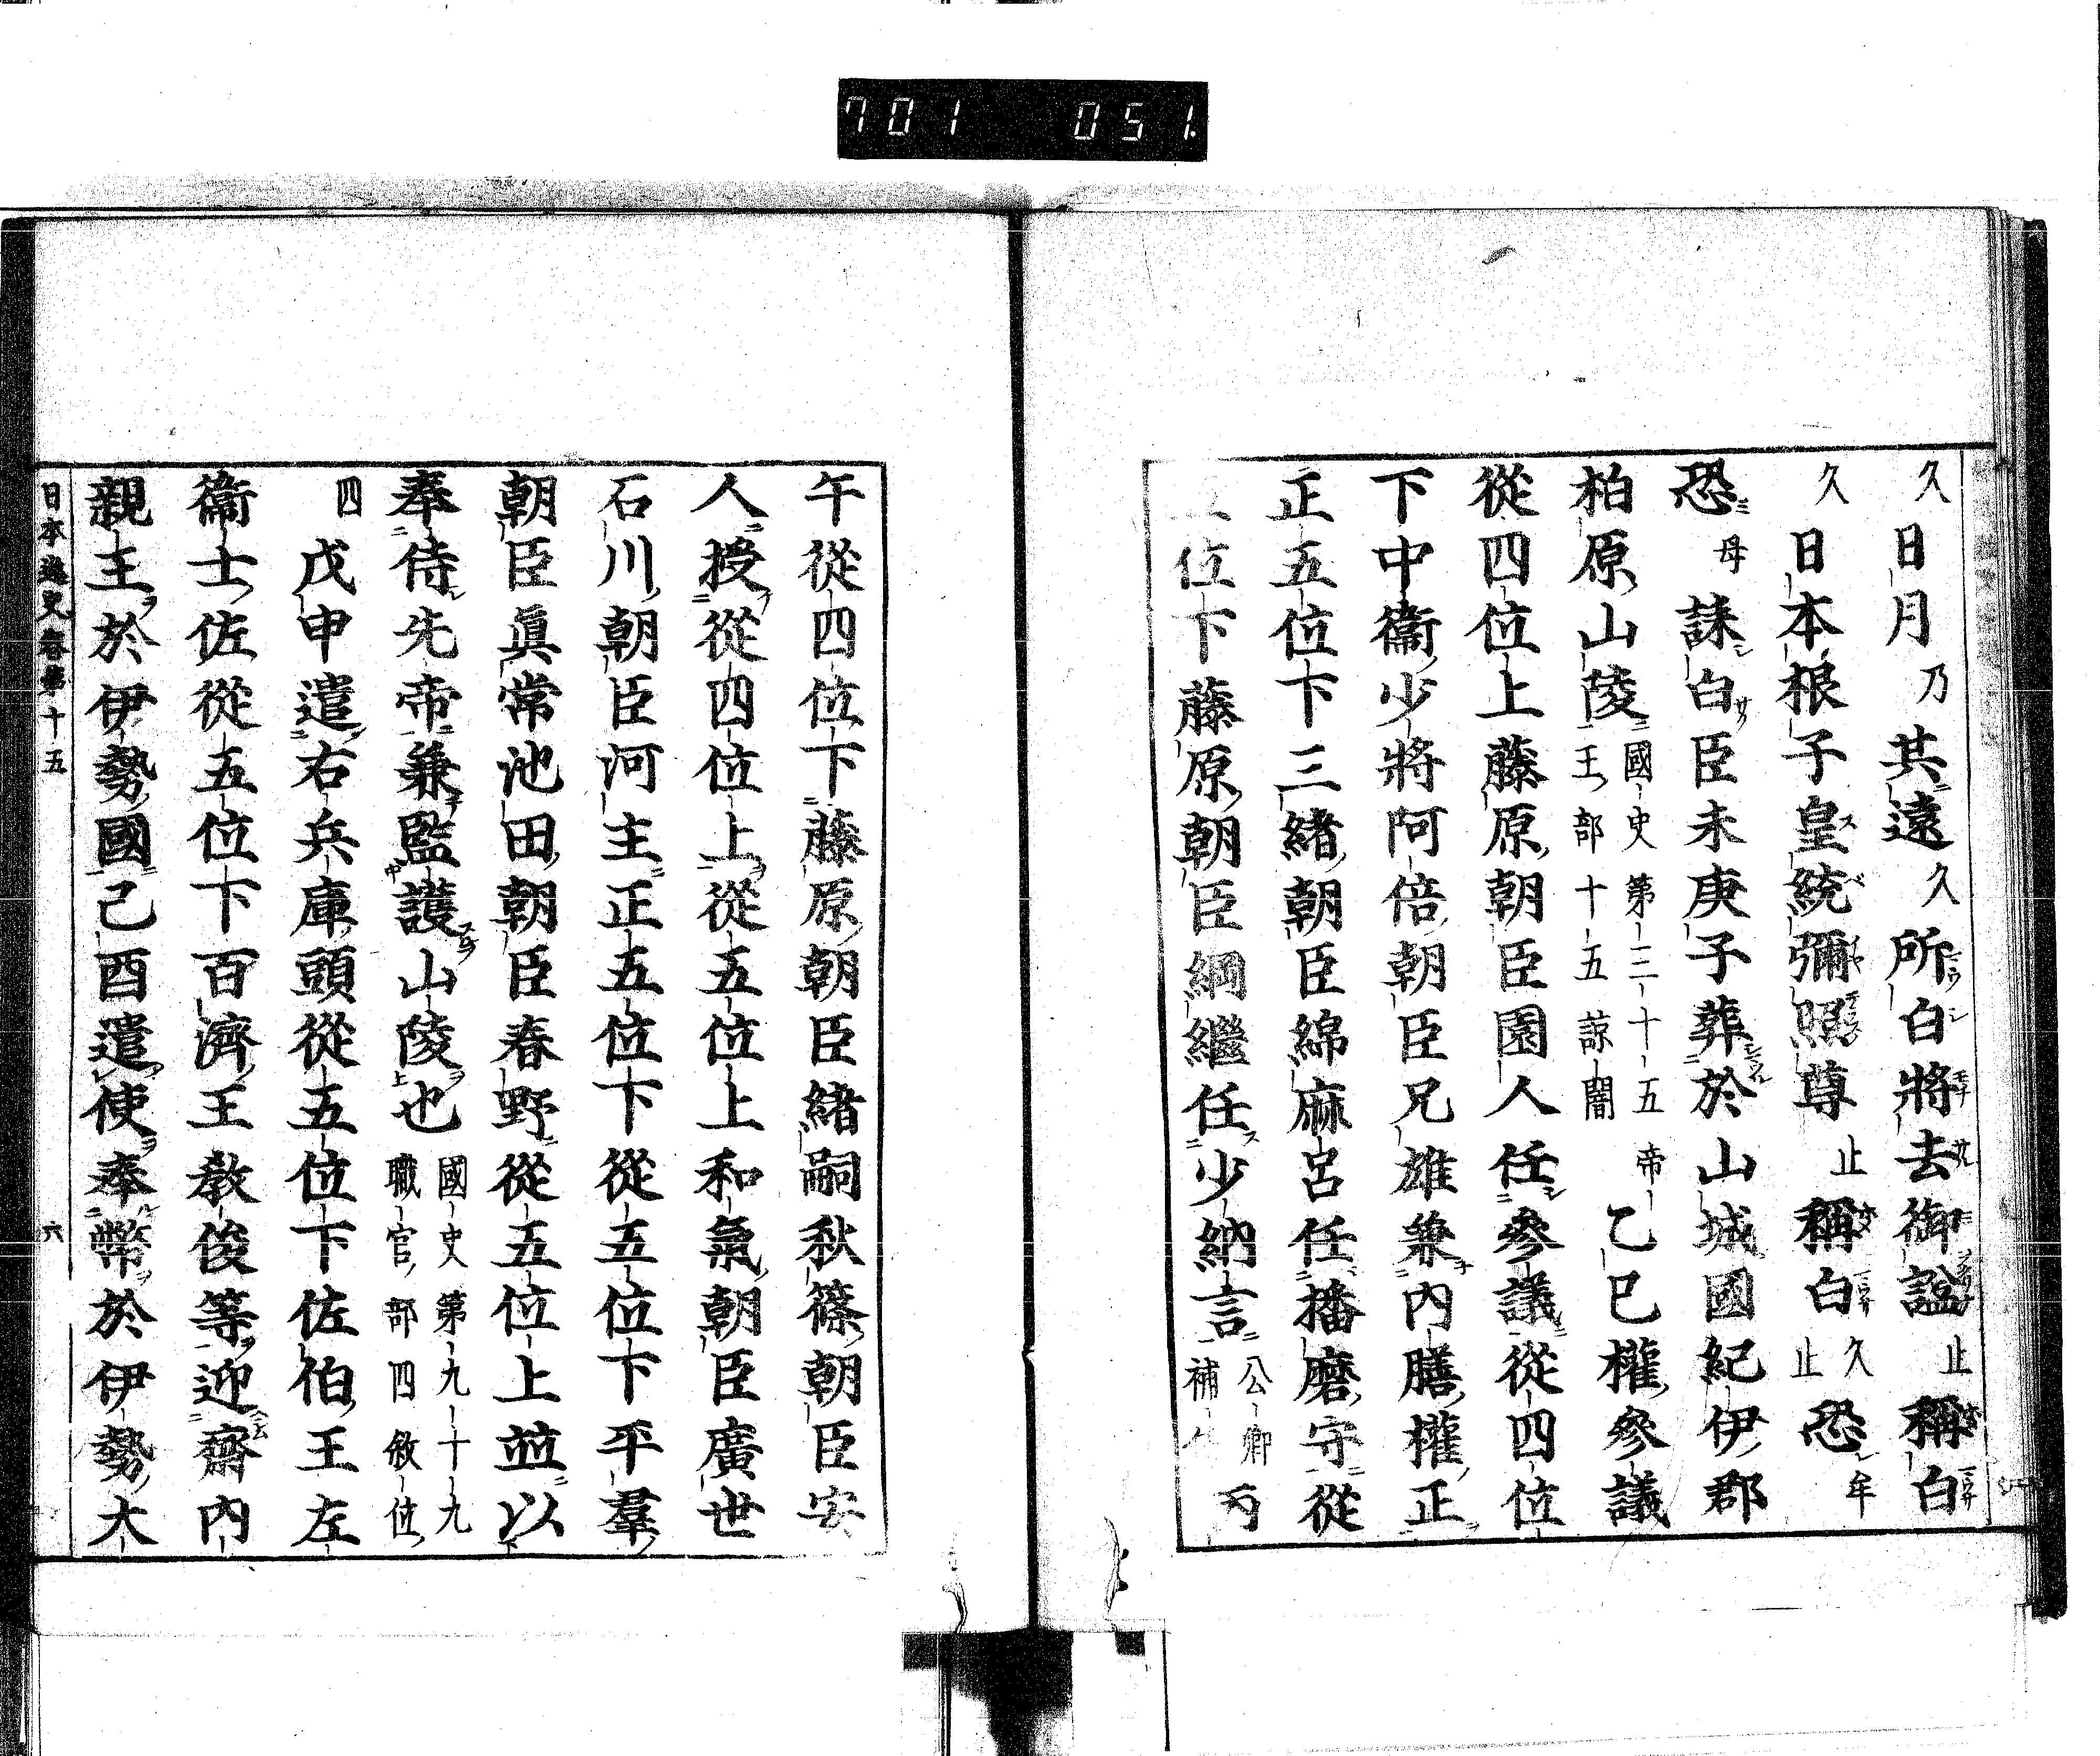 701 051
久日月乃其遠久所白將去御謚止稱白
久日本根子皇統彌照尊止稱白久止恐牟
恐母誄白臣未庚子葬於山城國紀伊郡
柏原山陵國史第三十五帝王部十五諒闇乙巳權參議
從四位上藤原朝臣園人任參議從四位
下中衞少將阿倍朝臣兄雄兼內膳權正
正五位下三緒朝臣綿麻呂任播磨守從
位下藤原朝臣綱繼任少納言公卿補丙
午從四位下藤原朝臣緒嗣秋篠朝臣安
人授從四位上從五位上和氣朝臣廣世
石川朝臣河主正五位下從五位下平羣
朝臣眞常池田朝臣春野從五位上並以
奉侍先帝兼監護山陵也國史第九十九職官部四敘位
四戊申遣右兵庫頭從五位下佐伯王左
衞士佐從五位下百濟王教俊等迎齋內
親王於伊勢國己酉遣使奉幣於伊勢大
日本逸史卷第十五 六